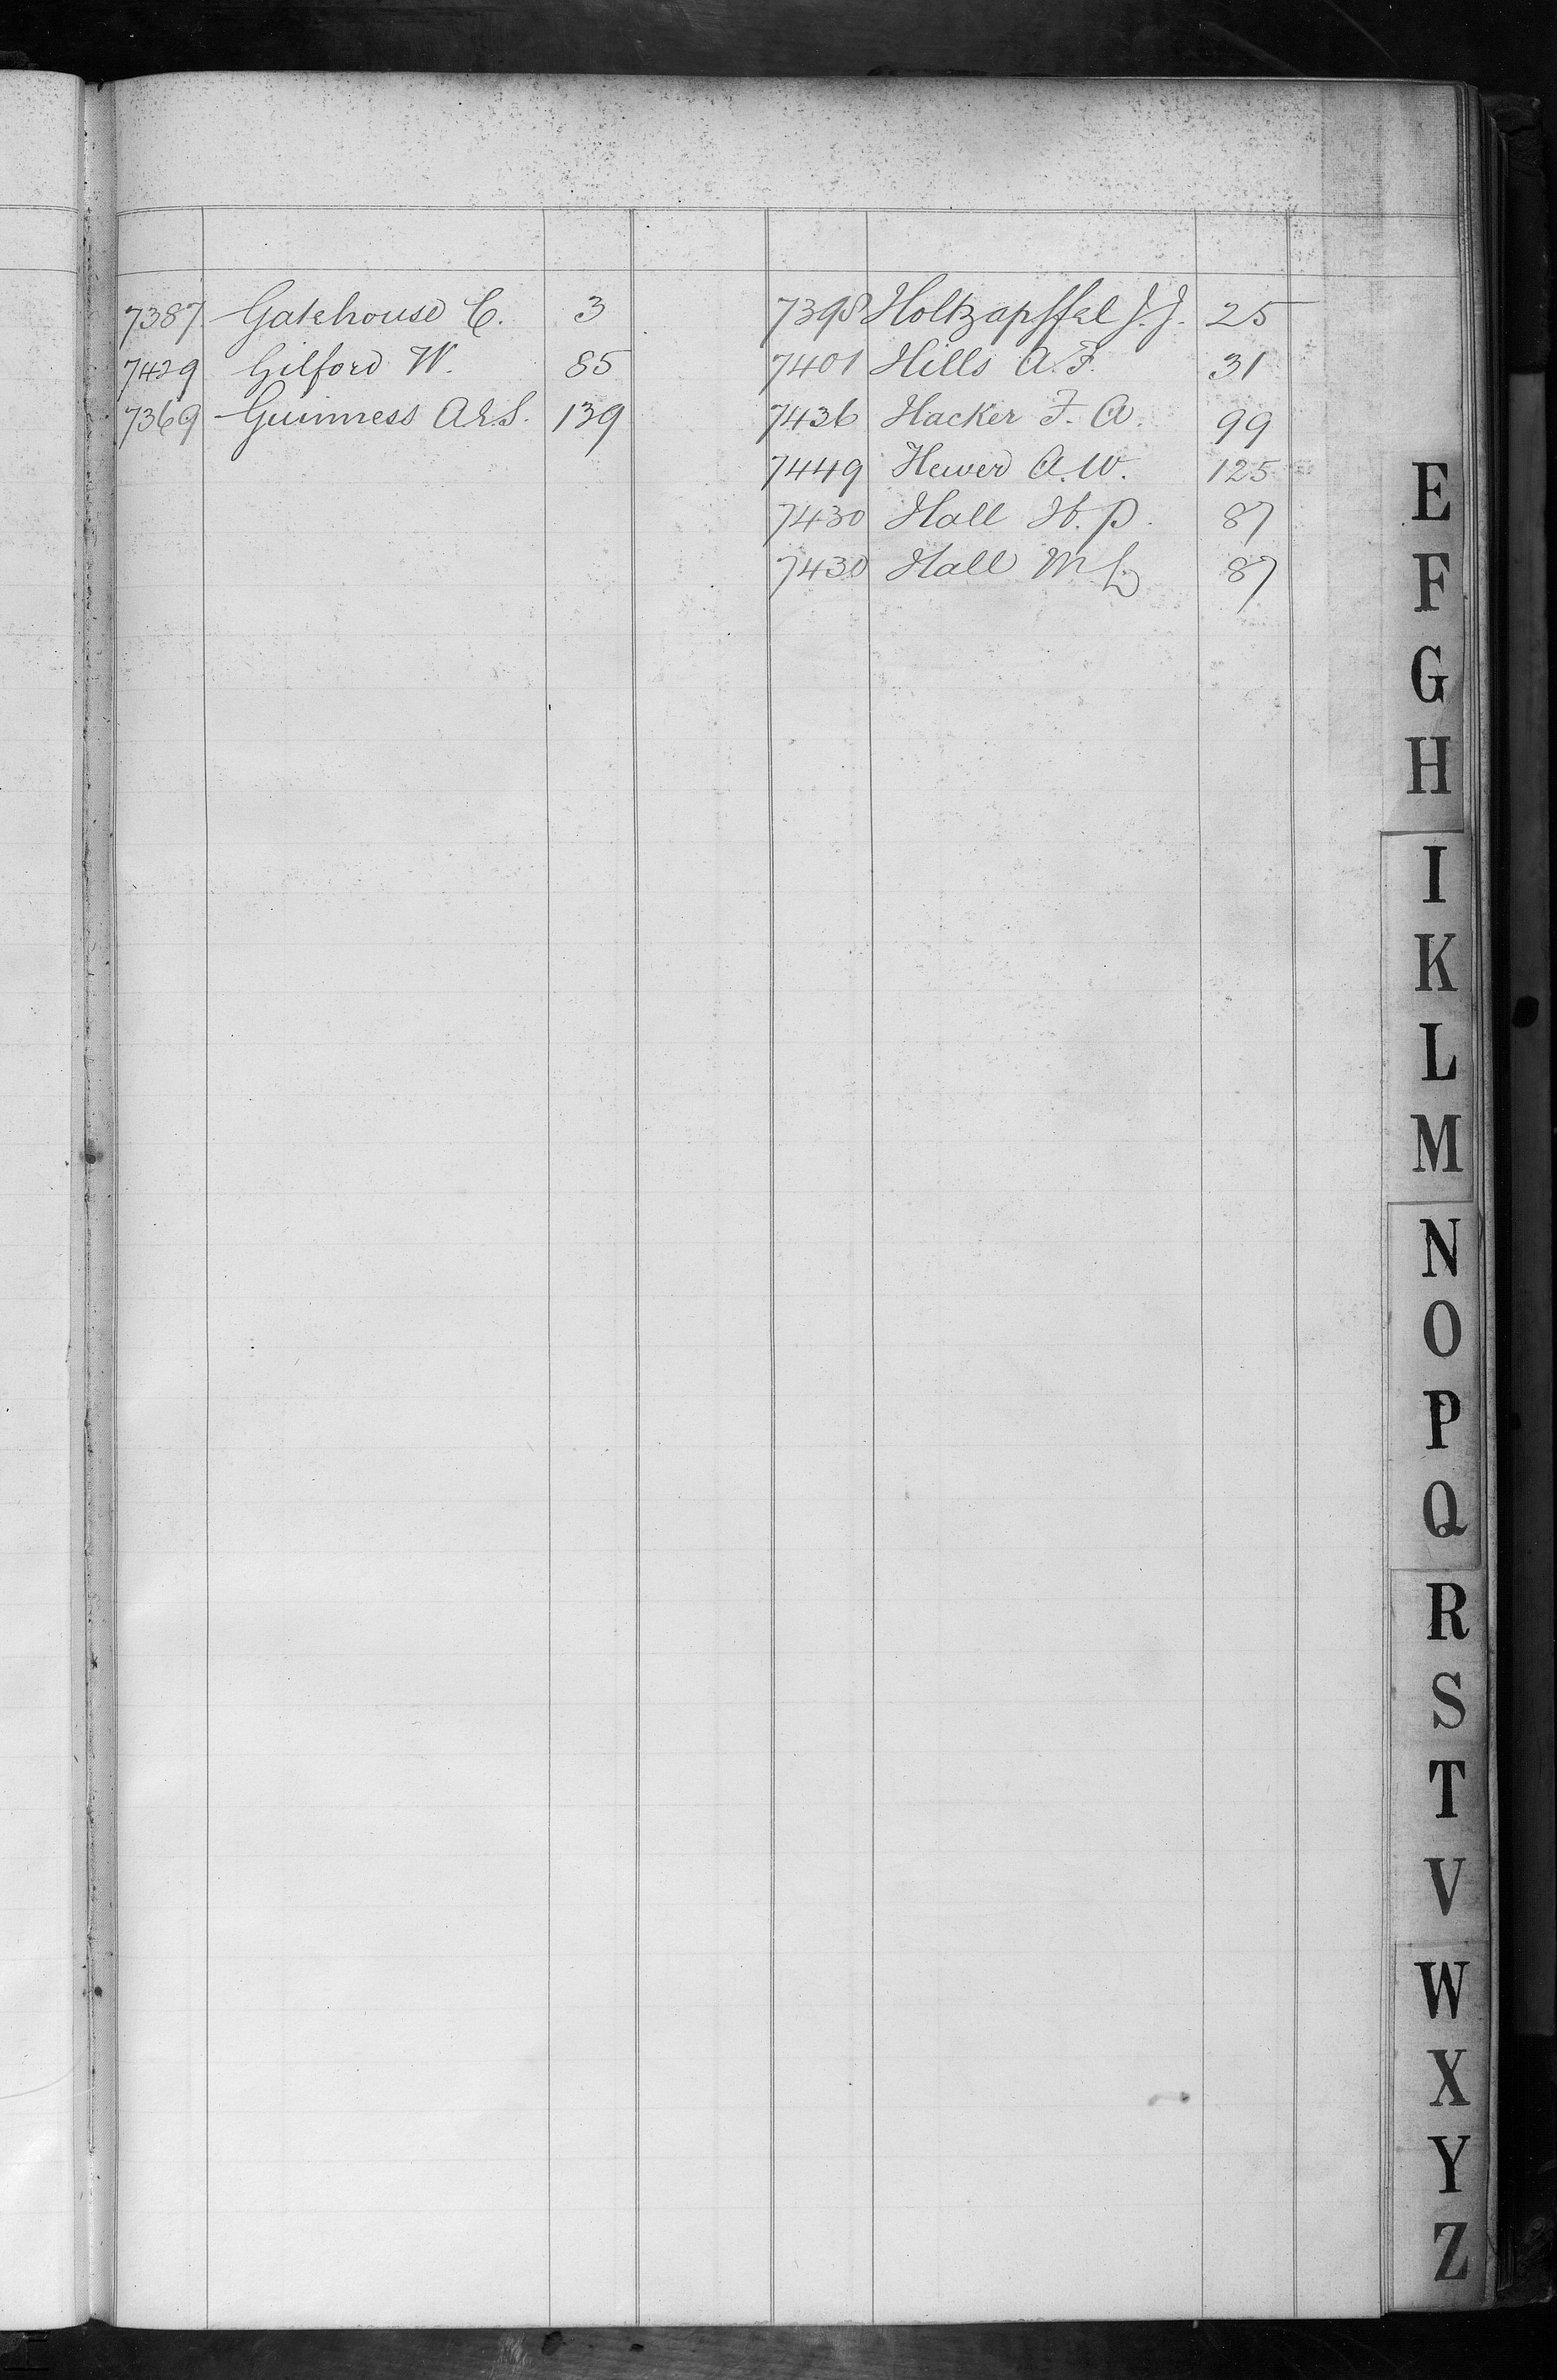 7387 Gatehouse C. 3
7429 Gilford W. 85
7369 Guinness A.E.S. 139
7398 Holtzapffel J.J. 25
7401 Hills A.F. 31
7436 Hacker F.A. 99
7449 Hewer A.W. 125
7430 Hall H.P. 87
7430 Hall M.L. 87
E
F
G
H
I
K
L
M
N
O
P
Q
R
S
T
V
W
X
Y
Z